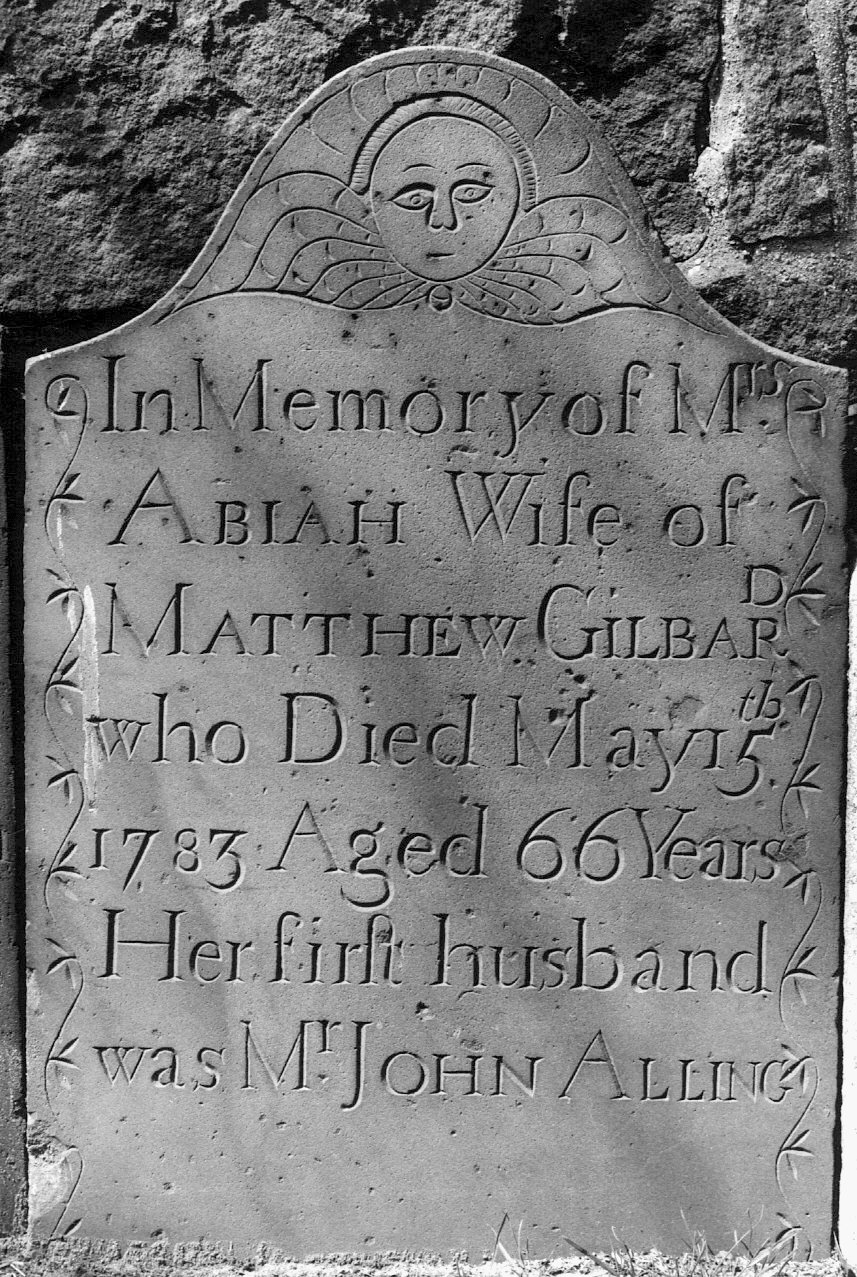 In Memory of Mrs.
ABIAH Wife of
MATTHEW GILBARD
who Died May 15th
1783 Aged 66 Years
Her firſt husband
was Mr. JOHN ALLING